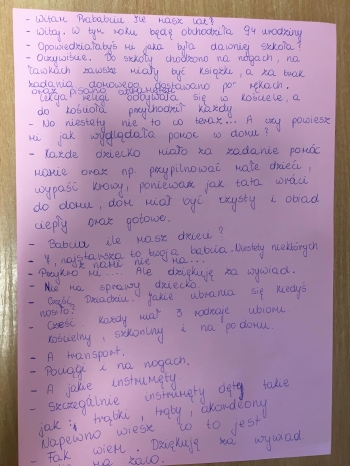 - Witam Prababciu. Ile masz lat?
- Witaj. W tym roku będę obchodziła 94 urodziny
- Opowiedziałabyś mi jaka była dawniej szkoła?
- Oczywiście. Do szkoły chodzono na nogach, na
ławkach zawsze miały być książki, a za brak
zadania domowego dostawano po rękach.
oraz pisano atramentem
Lekcja religi odbywała się w kościele, a
do kościoła przychodził każdy
- No niestety nie to co teraz... A czy powiesz
mi jak wyglądała pomoc w domu?
- Każde dziecko miało za zadanie pomóc
mamie oraz np. przypilnować małe dzieci,
wypaść krowy, ponieważ jak tata wróci
do domu, dom miał być czysty i obiad
ciepły oraz gotowe.
- Babciu ile masz dzieci?
- 7, najstarszą to twoja babcia. Niestety niektórych
z nami nie ma...
- Przykro mi .... Ale dziękuję za wywiad.
- Nie ma sprawy dziecko.
- Cześć Dziadziu. Jakie ubrania się kiedyś
nosiło?
- Cześć każdy miał 3 rodzaje ubioru
kościelny, szkolny i na po domu.
- A transport.
- Pociąg i na nogach.
- A jakie instrumęty
- Szczególnie instrumęty dęte takie
jak: trąbki, trąby, akordeony
Napewno wiesz co to jest
- Tak wiem. Dziękuję za wywiad
- Nie ma za co.